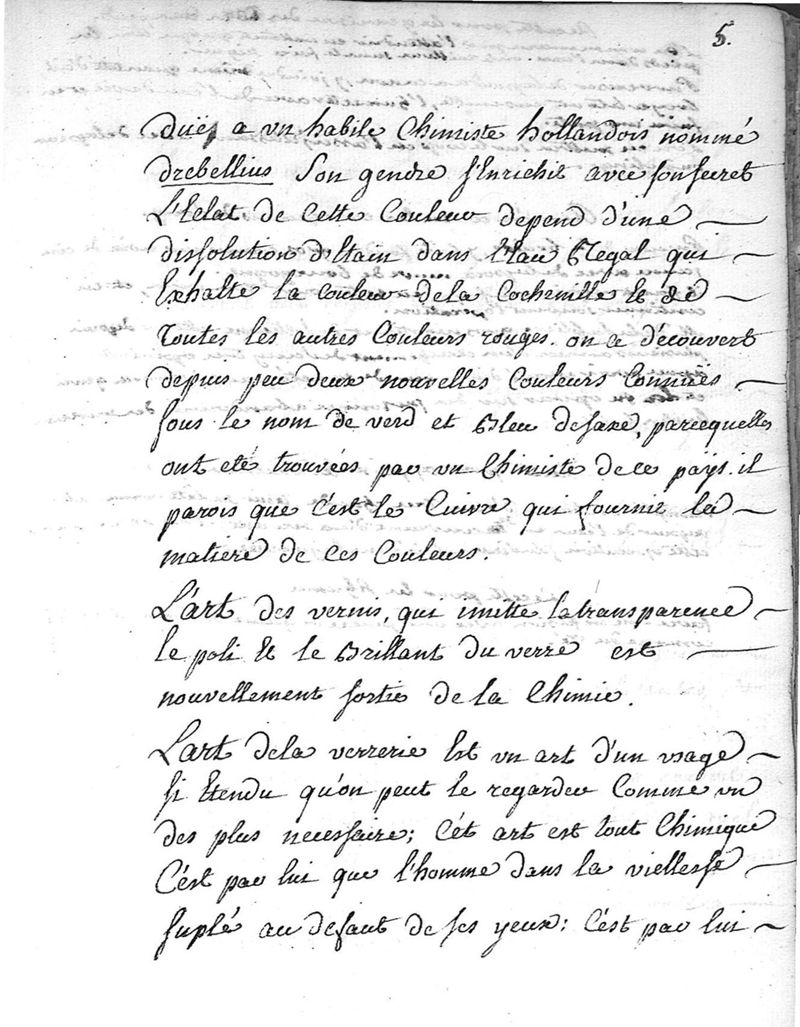 5.
düe, a un habile Chimiste hollandois nommé
drebellius Son gendre s'Enrichit avec son secret
L'Eclat de Cette Couleur depend d'une
dissolution d'Etain dans l'Eau Regal qui
Exhalte la couleur de la Cochenille Et de
toutes les autres Couleurs rouges. on a découvert
depuis peu deux nouvelles Couleurs Connuës
sous le nom de verd et Bleu de saxe, parcequelles
ont eté trouvées par un Chimiste de ce pays. il
parois que c'est le Cuivre qui fournit la
matiere de ces Couleurs.
L'art des vernis, qui imitte la transparence
le poli Et le Brillant du verre est
nouvellement sortie de la Chimie.
L'art de la verrerie Est un art d'un usage
si Etendu qu'on peut le regarder Comme un
des plus necessaire; Cét art est tout Chimique
C'est par lui que l'homme dans la viellesse
suplé au defaut de ses yeux: C'est par lui